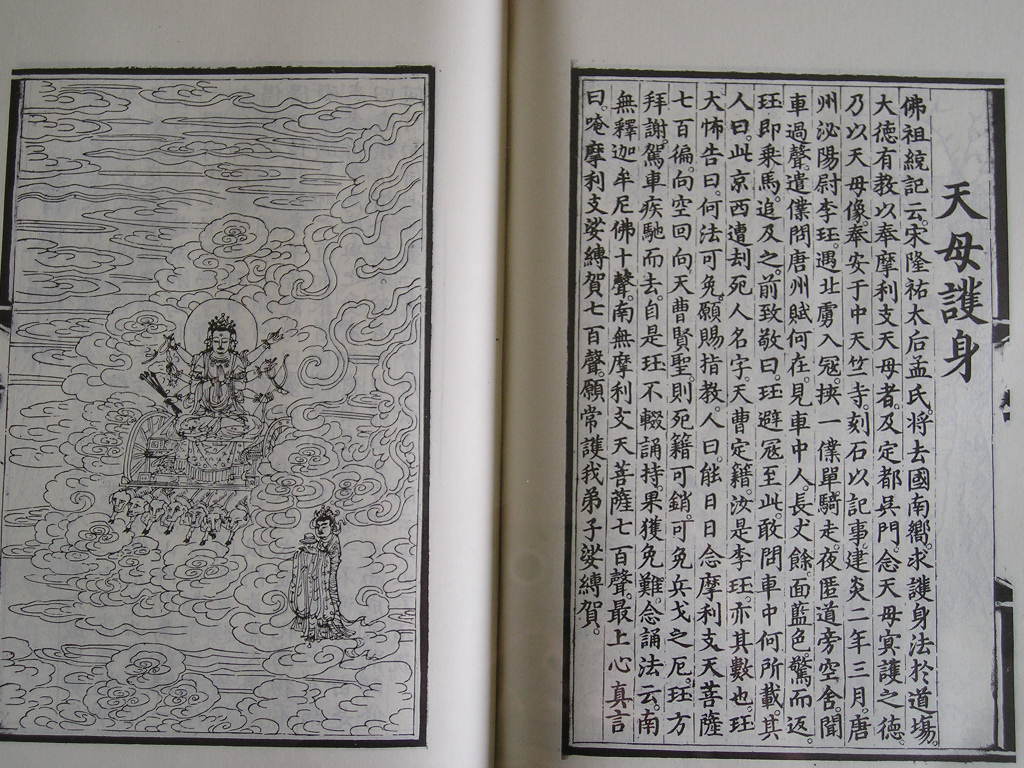 天母護身
佛祖統記云。宋隆祐太后孟氏。將去國南嚮。求護身法於道場。
大德有教以奉摩利支天母者。及定都吳門。念天母冥護之德。
乃以天母像。奉安于中天竺寺。刻石以記事。建炎二年三月。唐
州泌陽尉李珏。遇北虜入冦。挾一僕單騎走。夜匿道旁空舍。聞
車過聲。遣僕問唐州賊何在。見車中人長丈餘。面藍色。驚而返
珏即乘馬。追及之。前致敬曰。珏避冦至此。敢問車中何所載。其
人曰。此京西遭刦死人名字。天曹定籍。汝是李珏亦其數也。珏
大怖告曰。何法可免。願賜指教。人曰。能日日念摩利支天菩薩
七百徧。向空回向天曹賢聖。則死籍可銷。可免兵戈之厄。珏方
拜謝。駕車疾馳而去。自是珏不輟誦持。果獲免難。念誦法云。南
無釋迦牟尼佛十聲。南無摩利支天菩薩七百聲。最上心真言
曰。唵摩利支娑縛賀七百聲。願常護我弟子娑縛賀。